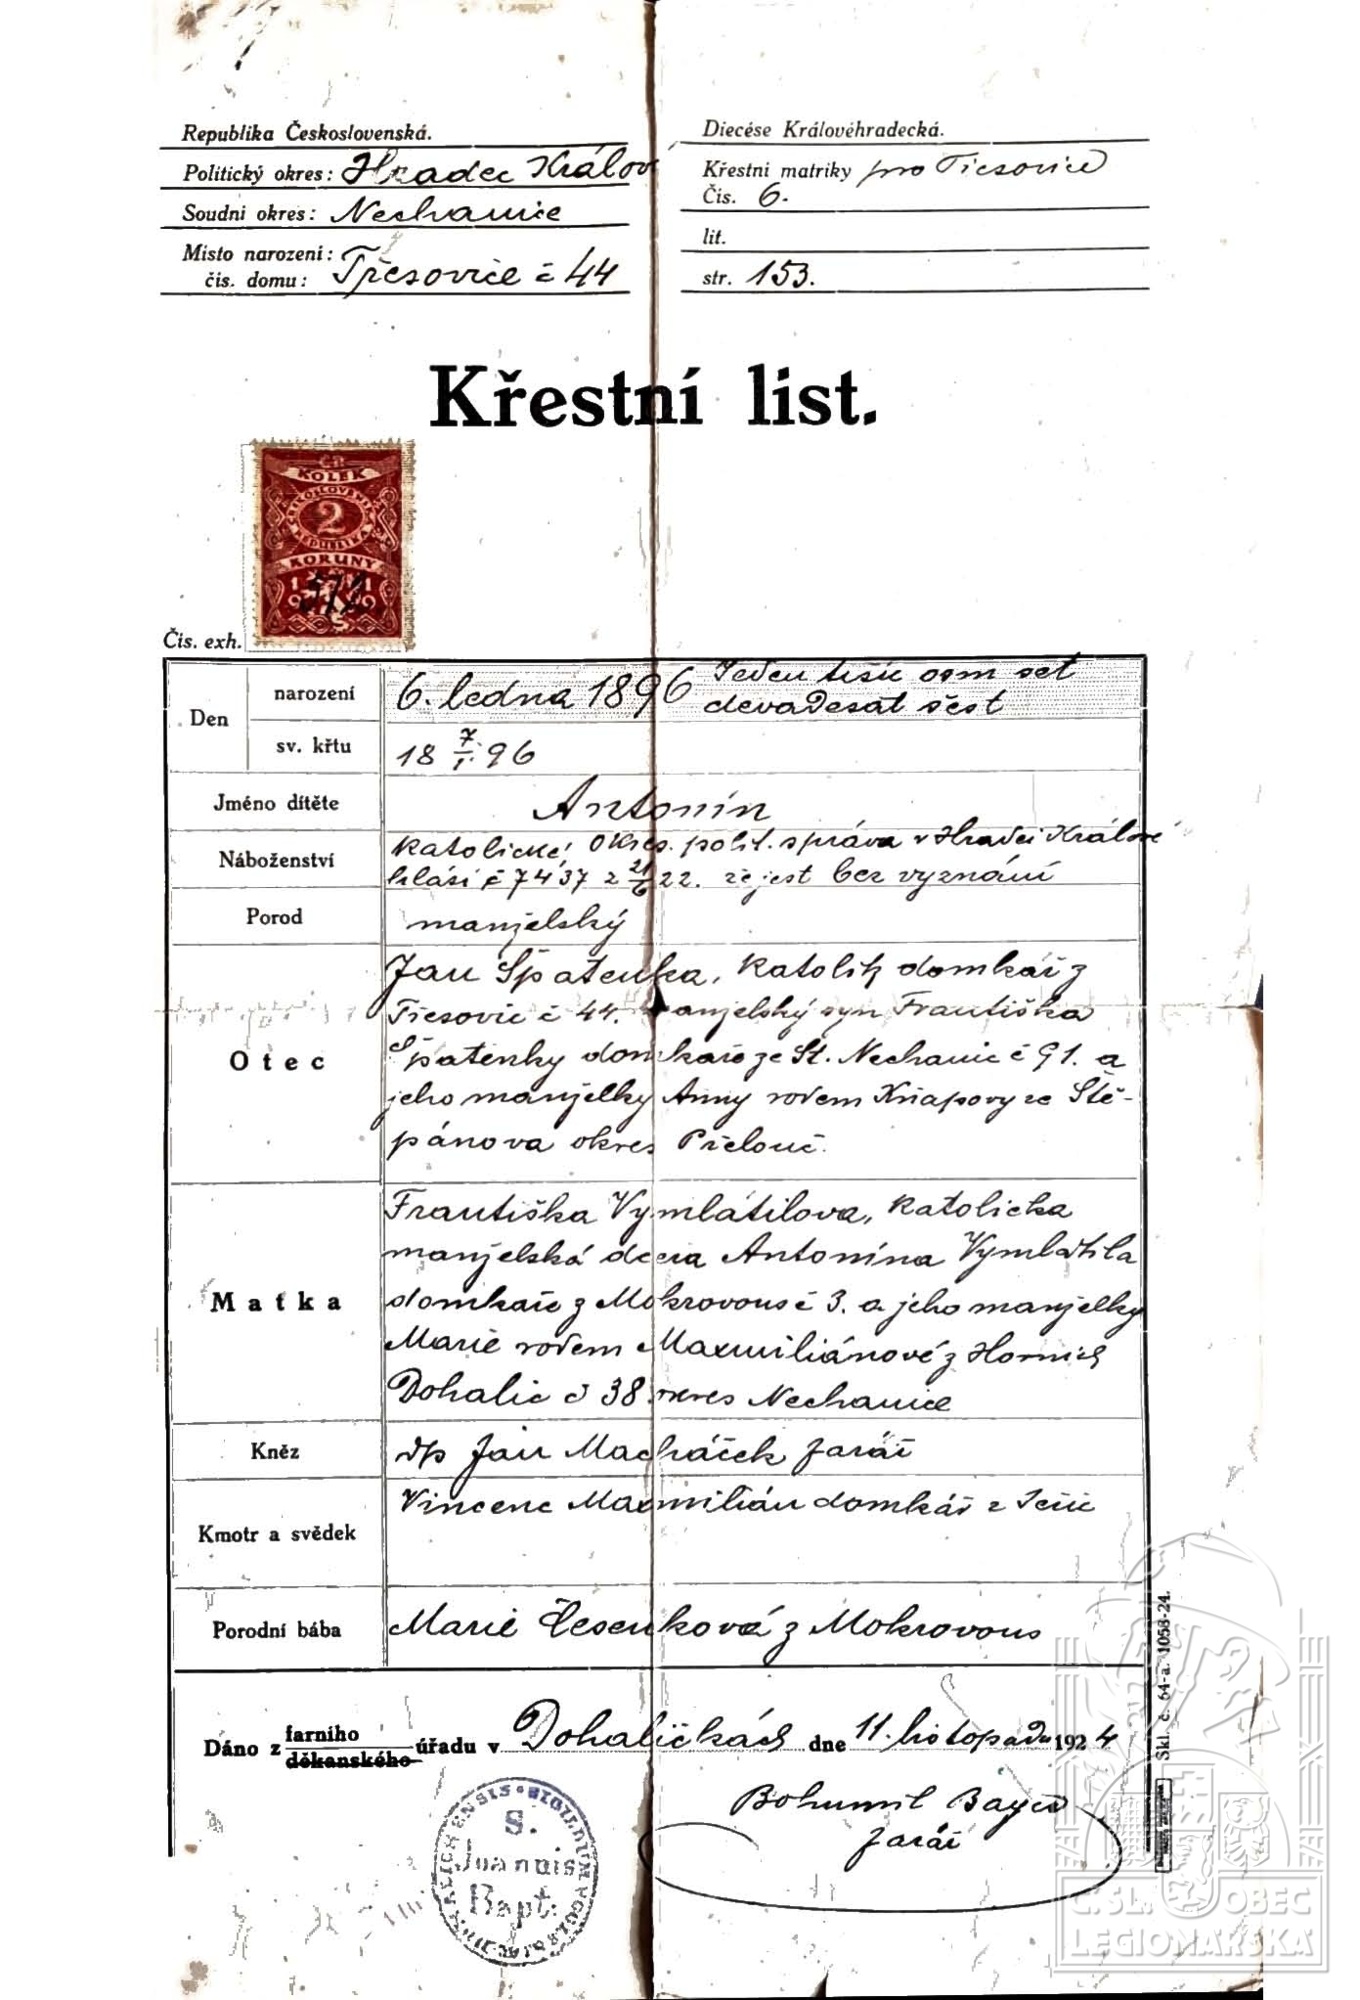 Republika Československá.
Politický okres: Hradec Králové
Soudní okres: Nechanice
Místo narození:
čís. domu: Třesovice č 44
Diecése Královéhradecká.
Křestní matriky pro Třesovice
Čís. 6.
lit.
str. 153.
Křestní list.
KOLEK
ČESKOSLOVENSKÁ
2
REPUBLIKA
KORUNY
1919
572
Čís. exh.
Den
narození
6. ledna 1896 Jeden tisíc osm set
devadesát šest
sv. křtu
18 7/I. 96
Jméno dítěte
Antonín
Náboženství
katolické, okres. polit. správa v Hradci Králové
hlásí č 7437 z 21/6 22. že jest bez vyznání
Porod
manželský
Otec
Jan Špatenka, katolík domkář z
Třesovic č 44. manželský syn Františka
Špatenky domkáře ze St. Nechanic č 91. a
jeho manželky Anny rodem Knapovy ze Ště-
pánova okres Přelouč.
Matka
Františka Vymlátilova, katolička
manželská dcera Antonína Vymlátila
domkáře z Mokrovous č 3. a jeho manželky
Marie rodem Maxmiliánové z Horních
Dohalic č 38 okres Nechanice
Kněz
dp Jan Macháček farář
Kmotr a svědek
Vincenc Maxmilián domkář z
Porodní bába
Marie Česenková z Mokrovous
Dáno z farního
děkanského úřadu v Dohaličkách dne 11. listopadu 1924
Bohumil
farář
S.
Joannis
Bapt.
Skl. č. 64-a. 1058-24.
Č. SL. OBEC
LEGIONÁŘSKÁ